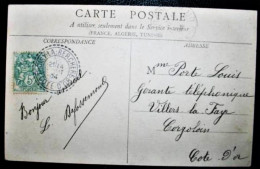 CARTE POSTALE
A utiliser seulement dans le Service intérieur
(FRANCE, ALGÉRIE, TUNISIE)
CORRESPONDANCE
ADRESSE
Bonjour
L.
Mme Porte Louis
Gérante téléphonique
Villers la Faye
Corgoloin
Côte D'or